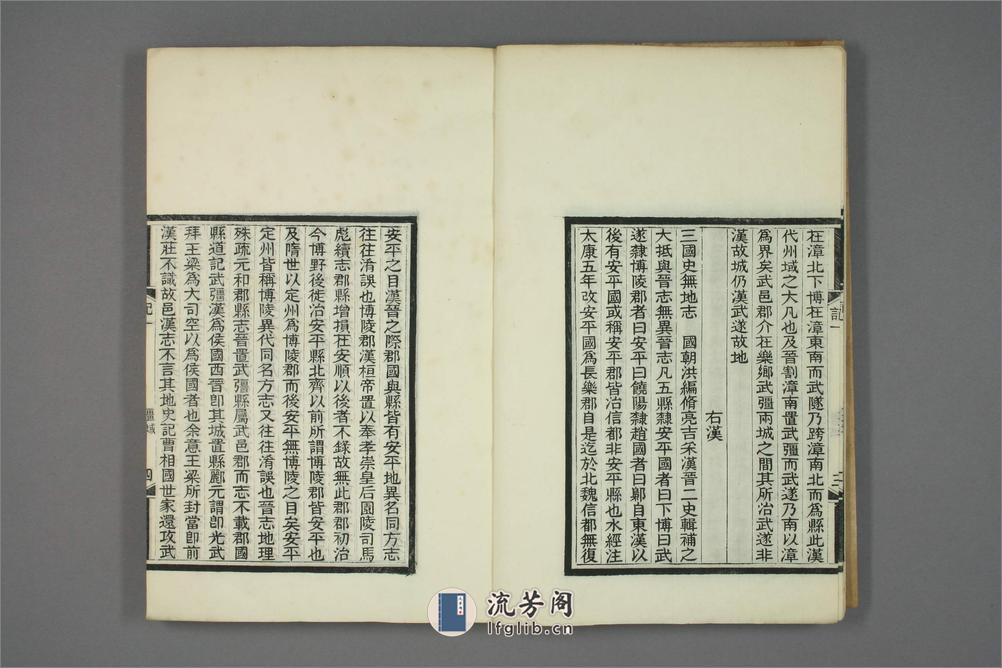 在漳北下博在漳東南而武隧乃跨漳南北而為縣此漢
代州域之大凡也及晉割漳南置武彊而武遂乃南以漳
為界矣武邑郡介在樂鄉武彊兩城之間其所治武遂非
漢故城仍漢武遂故地
右漢
三國史無地志 國朝洪編脩亮吉采漢晉二史輯補之
大抵與晉志無異晉志凡五縣隸安平國者曰下博曰武
遂隸博陵郡者曰安平曰饒陽隸趙國者曰鄡自東漢以
後有安平國或稱安平郡皆治信都非安平縣也水經注
太康五年改安平國為長樂郡自是迄於北魏信都無復
記一
三
安平之目漢晉之際郡國與縣皆有安平地異名同方志
往往淆誤也博陵郡漢桓帝置以奉孝崇皇后園陵司馬
彪續志郡縣增損在安順以後者不錄故無此郡郡初治
今博野後徙治安平縣北齊以前所謂博陵郡皆安平也
及隋世以定州為博陵郡而後安平無博陵之目矣安平
定州皆稱博陵異代同名方志又往往淆誤也晉志地理
殊疏元和郡縣志晉置武彊縣屬武邑郡而志不載郡國
縣道記武彊漢為侯國西晉即其城置縣酈元謂即光武
拜王梁為大司空以為侯國者也余意王梁所封當即前
漢莊不識故邑漢志不言其地史記曹相國世家還攻武
記一
疆域
四
流芳阁
lfglib.cn